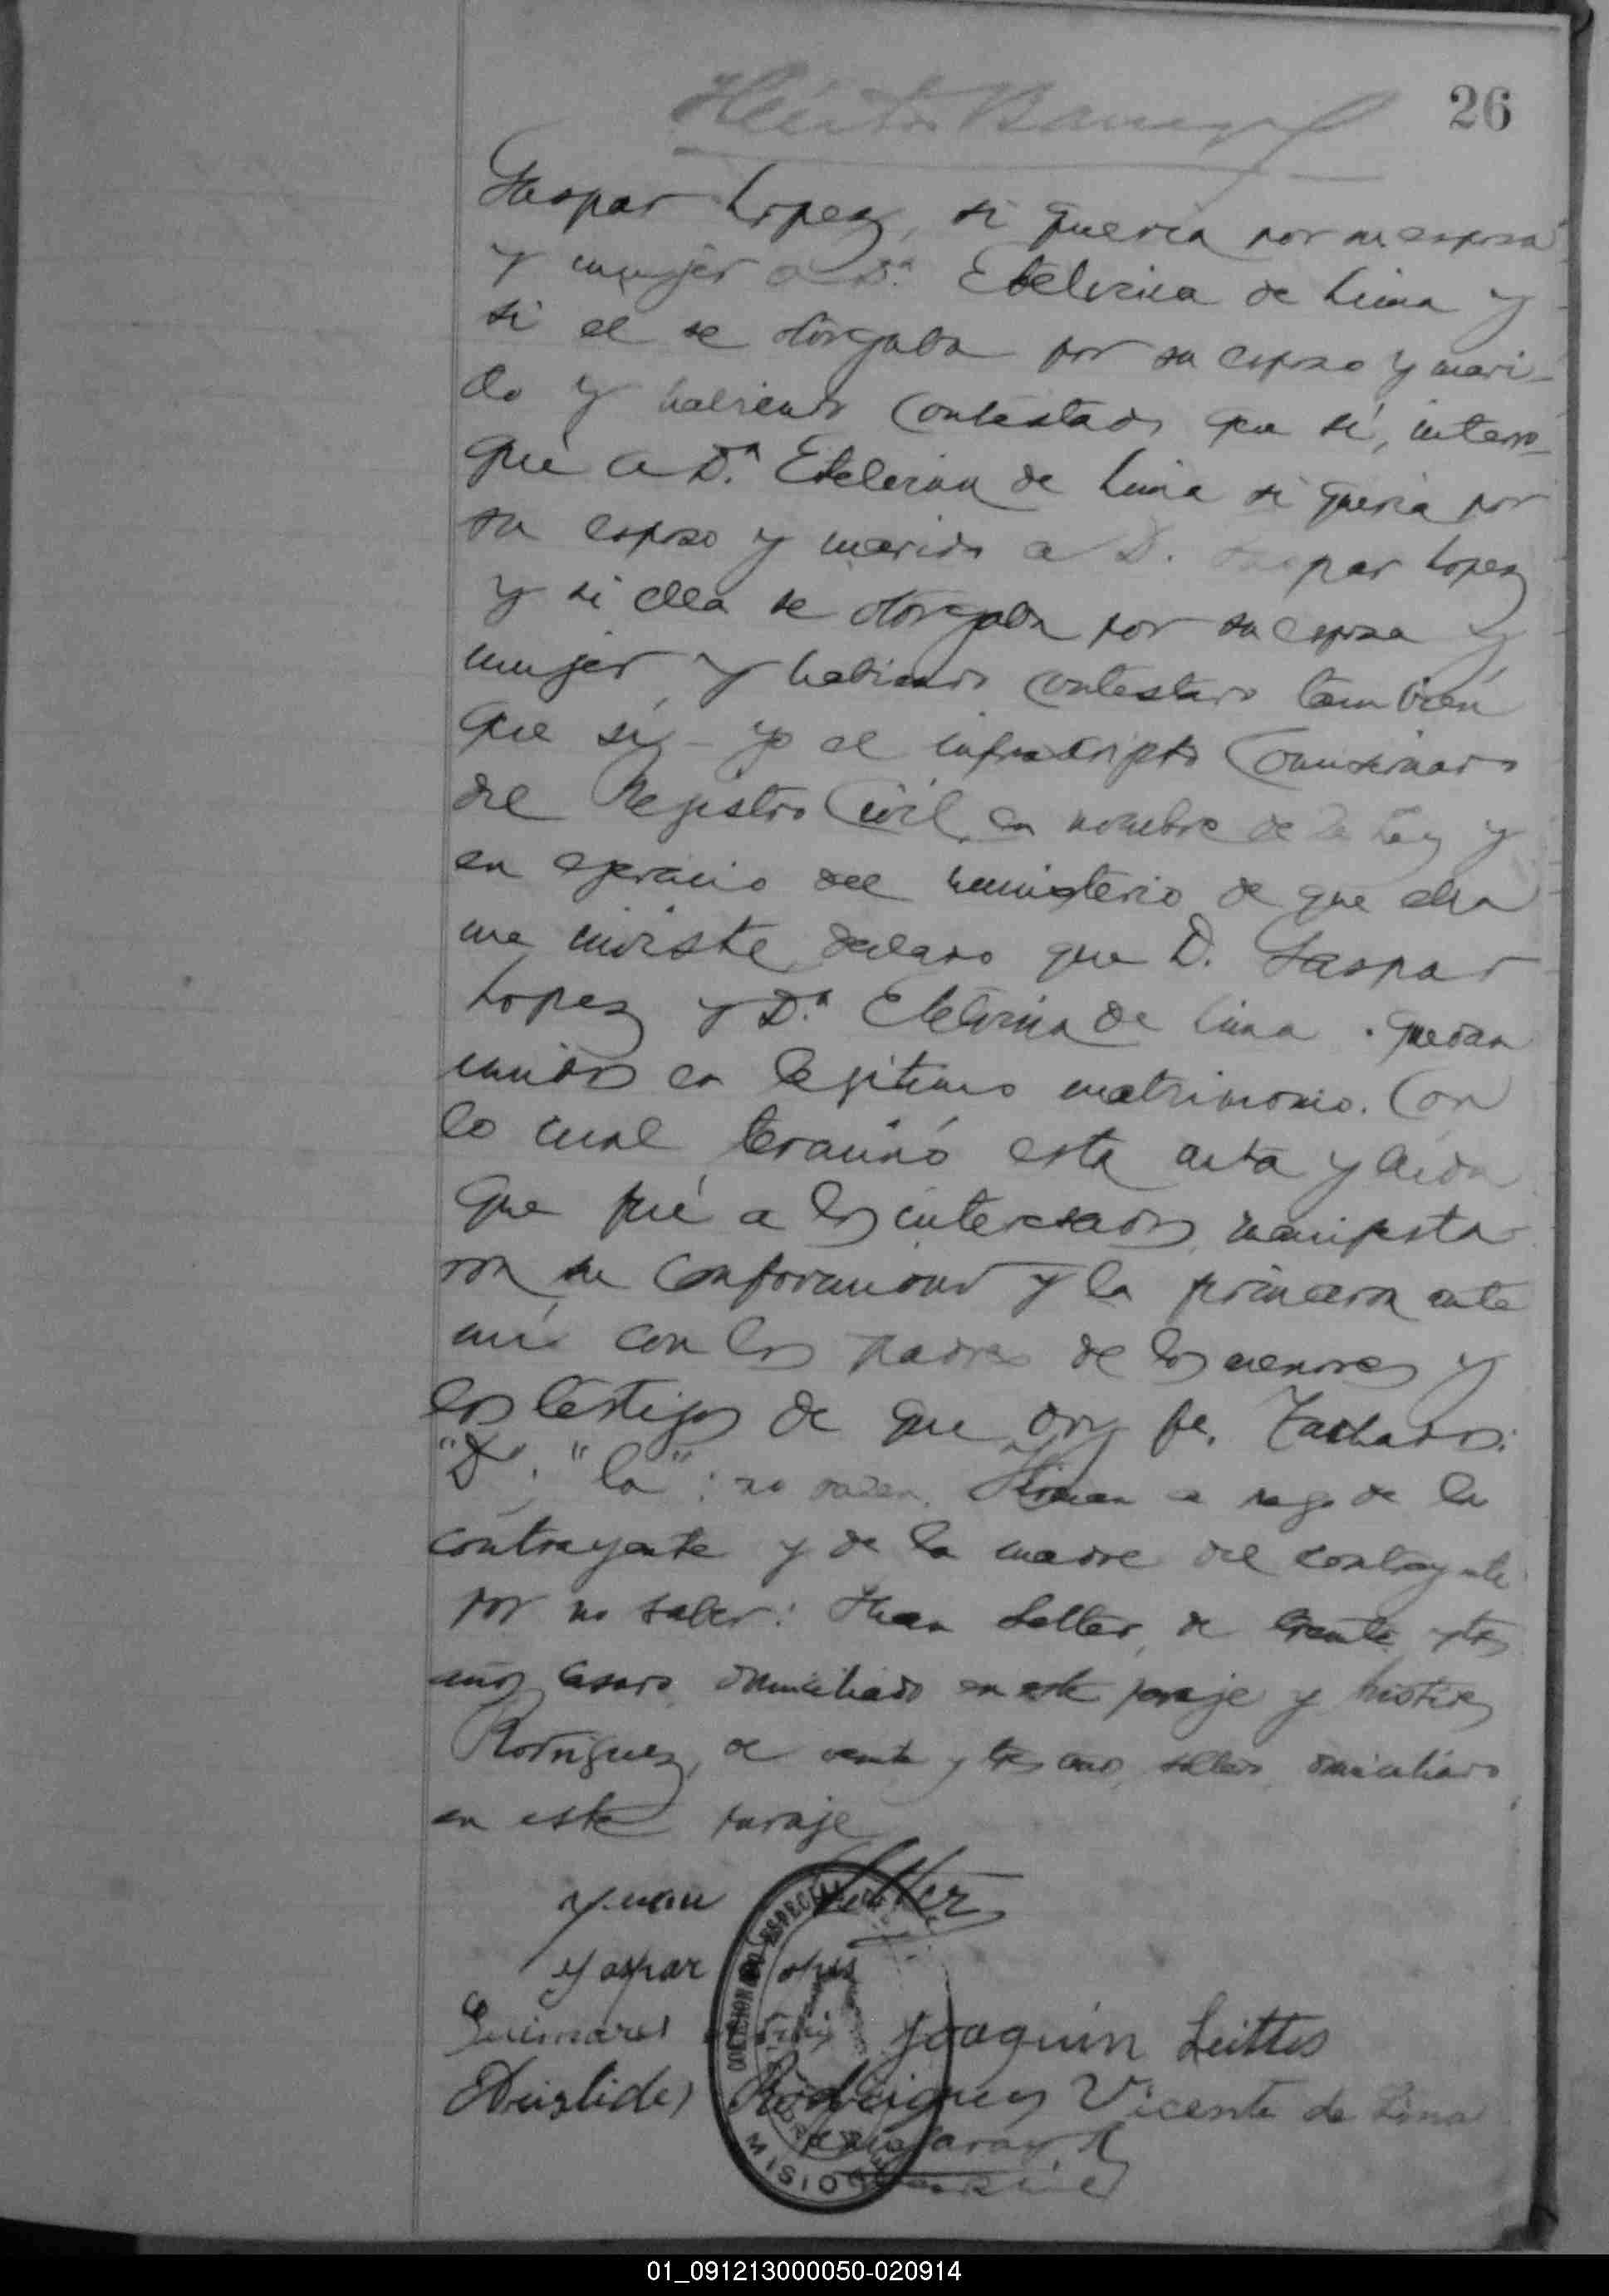 26
Gaspar Lopez, si queria por su esposa
y mujer a Dª. Etelvina de Lima y
si el se otorgaba por su esposo y mari-
do y habiendo contestado que sí, interro-
gué a Dª. Etelvina de Lima si queria por
su esposo y marido a D. Gaspar Lopez
y si ella se otorgaba por su esposa y
mujer y habiendo contestado tambien
que sí – yo el infrascripto Comisionado
del Registro Civil, en nombre de la Ley y
en ejercicio del ministerio de que ella
me inviste declaro que D. Gaspar
Lopez y Dª. Etelvina de Lima . quedan
unidos en legitimo matrimonio. Con
lo cual terminó esta acta y leida
que fué a los interesados, manifesta-
ron su conformidad y la firmaron ante
mí con los padres de los menores y
los testigos de que doy fe. Tachados:
"D", "la": no valen. Firman a ruego de la
contrayente y de la madre del contrayente
por no saber: Juan Setter, de treinta y tres
años, casado, domiciliado en este paraje y
Rodriguez, de veinte y tres años, soltero, domiciliado
en este paraje
Juan Setter
Gaspar Lopes
Joaquin Leittes
Rodriguez Vicente de Lima
MISIONES
01_091213000050-020914